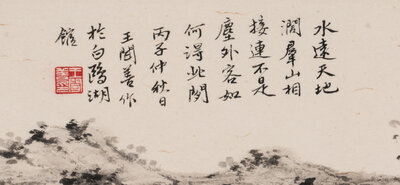 水遠天地
濶羣山相
接連不是
塵外客如
何得此閒
丙子仲秋日
王閑善作
於白鷗湖
館